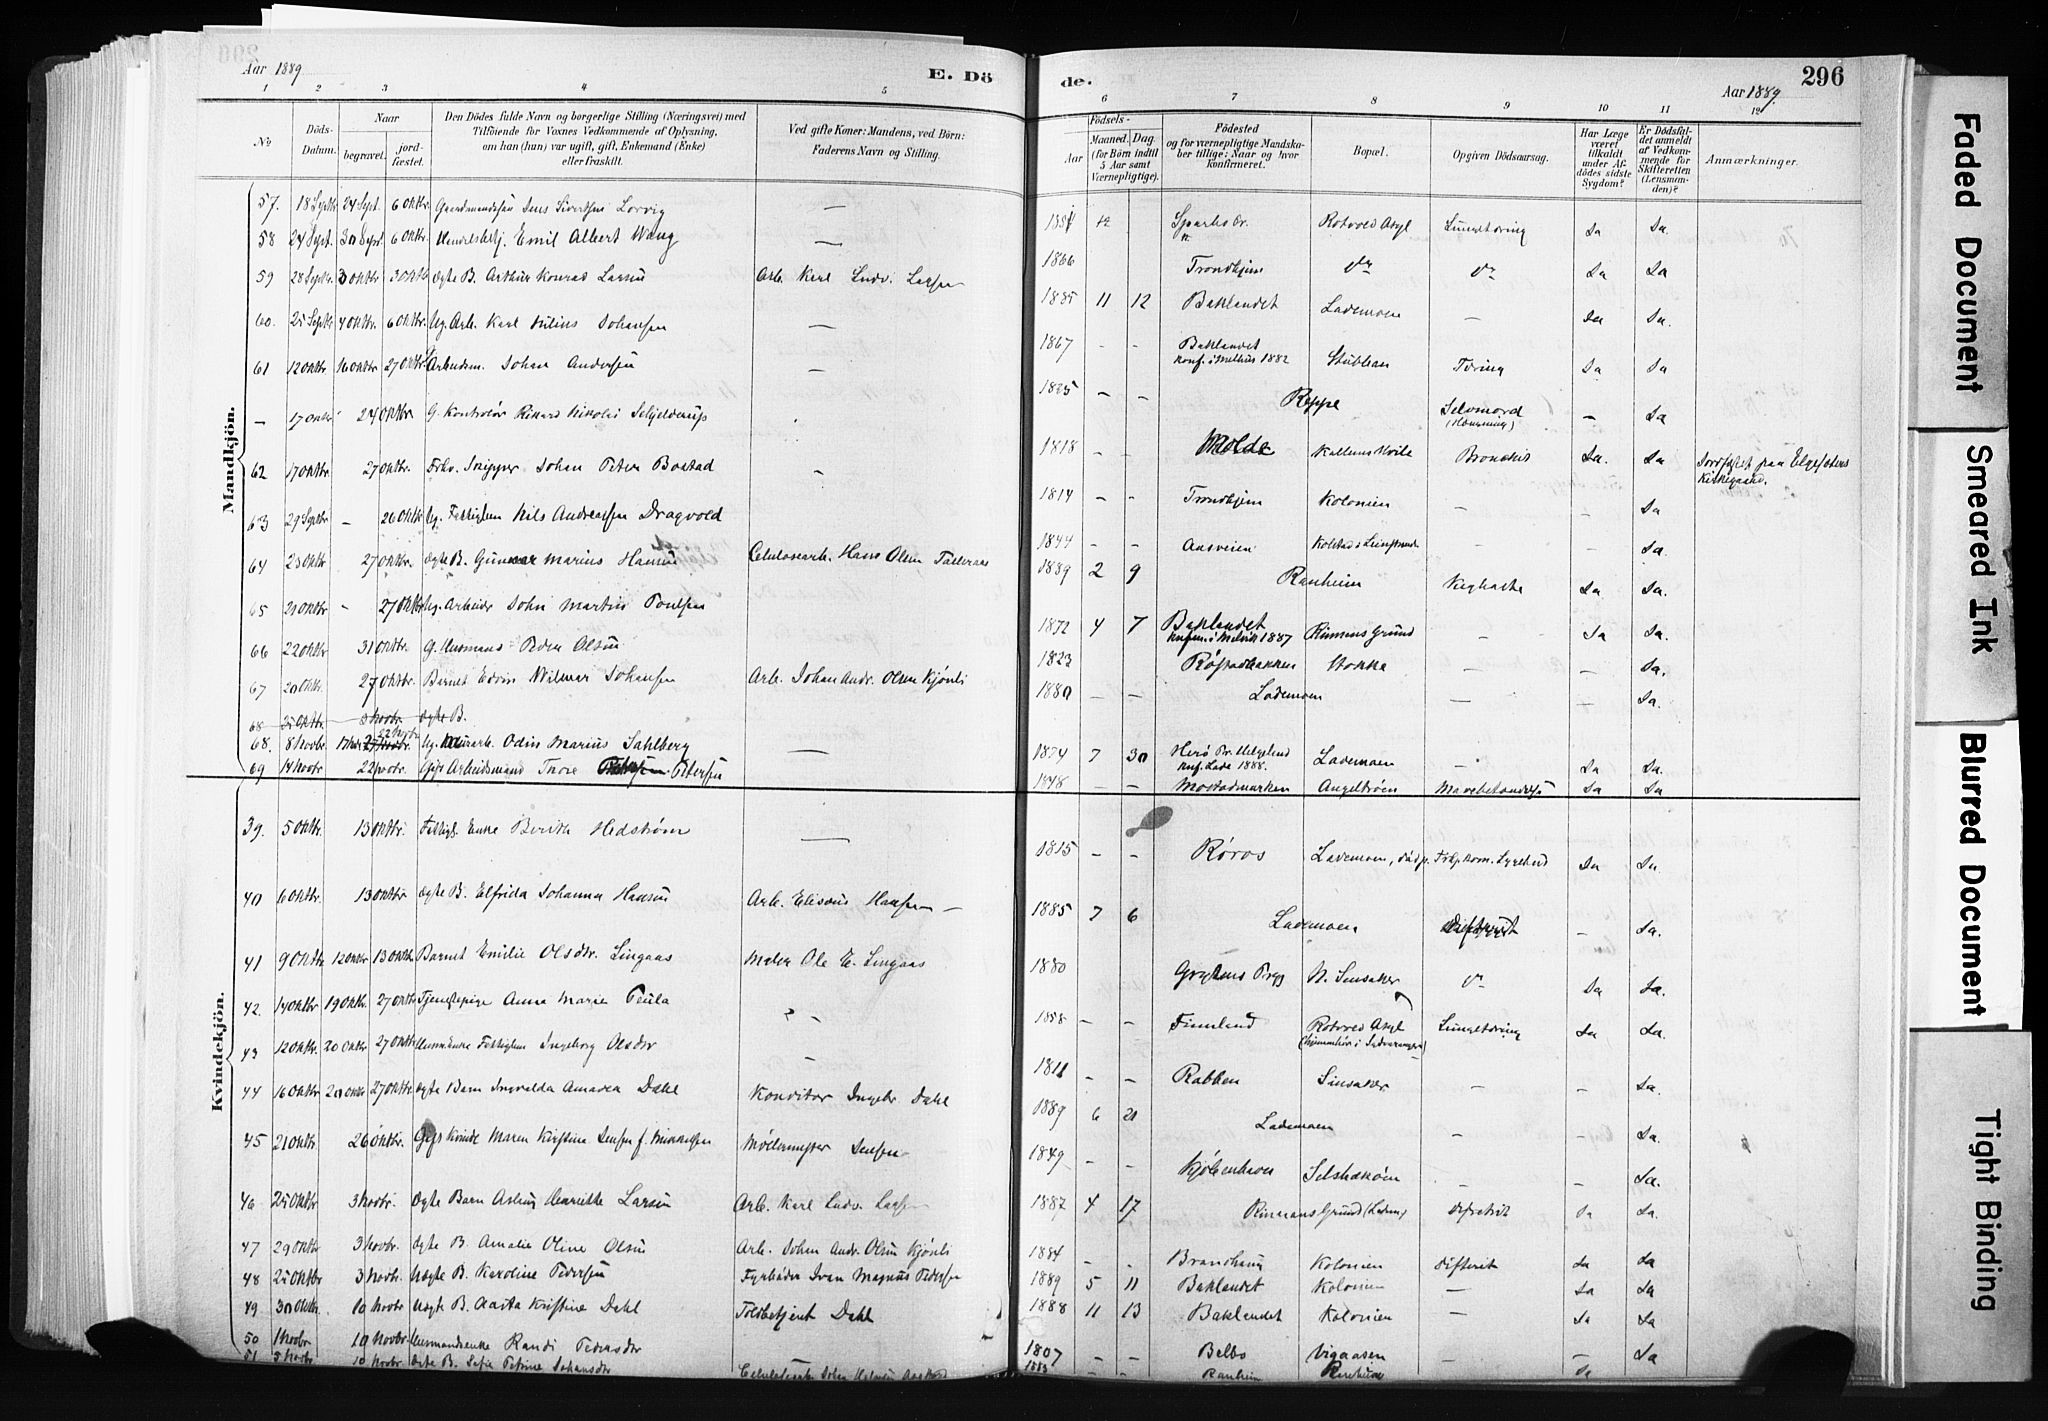 Aar 1889
E. Döde.
Aar 1889.
296
1 2 3 4 5 6 7 8 9 10 11 12
No
Döds-Datum.
Naar
begravet.
jord-fæstet.
Den Dödes fulde Navn og borgerlige Stilling (Næringsvei) med
Tilföiende for Voxnes Vedkommende af Oplysning,
om han (hun) var ugift, gift, Enkemand (Enke)
eller fraskilt.
Ved gifte Koner: Mandens, ved Börn:
Faderens Navn og Stilling.
Födsels-
Aar
Maaned. Dag.
(for Börn indtil
5 Aar samt
Værnepligtige).
Födested
og for værnepligtige Mandska-
ber tillige: Naar og hvor
konfirmeret.
Bopæl.
Opgiven Dödsaarsag.
Har Læge
været
tilkaldt
under Af-
dödes sidste
Sygdom?
Er Dödsfal-
det anmeldt
af Vedkom-
mende for
Skifteretten
(Lensman-
den)?
Anmærkninger.
Mandkjön.
57. 18 Septbr 24 Sept. 6 Oktbr. Gaardmandssøn Jens Sivertsen Lorvig — Rotvold Asyl Lungetæring Ja Ja.
58 24 Sept. 30 Sept 6 Oktbr. Handelsbetj. Emil Albert Wang — 1866 Trondhjem do do Ja Ja
59 28 Septbr. 3 Oktbr 3 Oktb Ægte B. Arthur Konrad Larsen Arb. Karl Ludv. Larsen 1885 11 12 Baklandet Lademoen — Ja Ja.
60. 25 Septbr 4 Oktbr. 6 Oktbr. Ug. Arb. Karl Julius Johansen — 1867 - - Baklandet konf. i Melhus 1882 Stubban Tæring Ja Ja
61 12 Oktbr 16 Oktbr 27 Oktbr Arbeidsm. Johan Andersen — 1825 — — Reppe Selvmord (Hængning) — Ja
— 17 Oktbr 24 Oktbr. G. Kontrolør Rikard Nikolai Schjelderup 1818 - - Molde Kallemshvile Bronkit Ja. Ja Jordfæstet paa Elgesæters Kirkegaard.
62 17 Oktbr. 27 Oktbr. Frhv. Skipper Johan Peter Bostad — 1814 - - Trondhjem Kolonien — - Ja
63 29 Septbr — 26 Oktbr Ug. Fattiglem Nils Andreassen Dragvold 1844 - - Aasveien — — Ja.
64 23 Oktbr 27 Oktbr. Ægte B. Gunnar Marius Hansen Celulosearb. Hans Olsen 1889 2 9 Ranheim Kighoste Ja Ja.
65 21 Oktbr - 27 Oktbr Ug. Arbeider John Martin Poulsen 1872 4 7 Baklandet konf. i Malvik 1887 Rinnans Grund Ja Ja.
66 22 Oktbr 31 Oktbr. G. Husmand Peder Olsen 1823 Røstadbakken Stokke — — Ja.
67 20 Oktbr. 27 Oktbr. Barnet Edvin Wilmar Johansen Arb. Johan Andr. Olsen Kjønli 1880 — — Lademoen — — Ja.
68 25 Oktbr. 3 Novbr. Ægte B.
68. 8 Novbr. 22 Novbr. Ug. Murarb. Odin Marius Sahlberg — 1874 7 30 Herø Pr. Helgeland Knf. Lade 1888. Lademoen — Ja Ja.
69 14 Novbr 22 Novbr. Gift Arbeidsmand Thore Petersen 1848 — — Mostadmarken Angeltrøen Mavebetændelse Ja Ja
Kvindekjön.
39. 5 Oktbr. 13 Oktbr. Fattigl. Enke Berith Hedstrøm — 1815 — - Røros Lademoen, Ja Ja.
40 6 Oktbr. 13 Oktbr Ægte B. Elfrida Johanna Hansen Arb. Elisæus Hansen — 1885 7 6 Lademoen Difterit — Ja.
41 9 Oktbr 12 Oktbr 13 Oktbr. Barnet Emilie Olsdtr. Lingaas Maler Ole E. Lingaas 1880 N. Sinsaker do Ja Ja.
42. 14 Oktbr 19 Oktbr. 27 Oktbr Tjenestepige Anna Marie Peula ? — 1858 - - Finnland Rotvold Asyl (hjemmehør. i Sydvaranger) Lungetæring Ja Ja.
43 12 Oktbr. 20 Oktbr 27 Oktbr Husmenke Fattiglem Ingeborg Olsdtr — 1811 - - Rabben Sinsaker - - Ja.
44 16 Oktbr 20 Oktbr 27 Oktbr. Ægte Barn Ingvalda Amanda Dahl Konditor Ingebr. Dahl 1889 6 21 Lademoen — — Ja.
45 21 Oktbr 26 Oktbr. Gift Kvinde Maren Kirstine Jensen f. Mikkelsen Møllermester Jensen 1849 - - Kjøbenhavn — — Ja.
46 25 Oktbr 3 Novbr. Ægte Barn Astrug Henriette Larsen Arb. Karl Ludv. Larsen 1887 4 17 Rinnans Grund (Ladem.) Difterit Ja Ja.
47 29 Oktbr 3 Novbr. Ægte B. Amalie Oline Olsen Arb. Johan Andr. Olsen Kjønli 1884 - - Brandhaug Kolonien Difterit Ja Ja
48 25 Oktbr 3 Novbr. Uægte B. Karoline Pedersen Fyrbøder Ivan Magnus Pedersen 1889 5 11 Baklandet Kolonien — Ja Ja
49 30 Oktbr. 10 Novbr Uægte B. Aasta Kristine Dahl Toldbetjent Dahl 1888 11 13 Baklandet Kolonien — Ja Ja
50 1 Novbr 10 Novbr. Husmandsenke Randi Pedersdtr — 1807 - - Belbo Vigaasen — — Ja
51 5 Novbr 10 Novbr. Ægte B. Sofie Petrine Johansdtr 1883 - - Ranheim Ranheim Ja
Faded Document
Smeared Ink
Blurred Document
Tight Binding